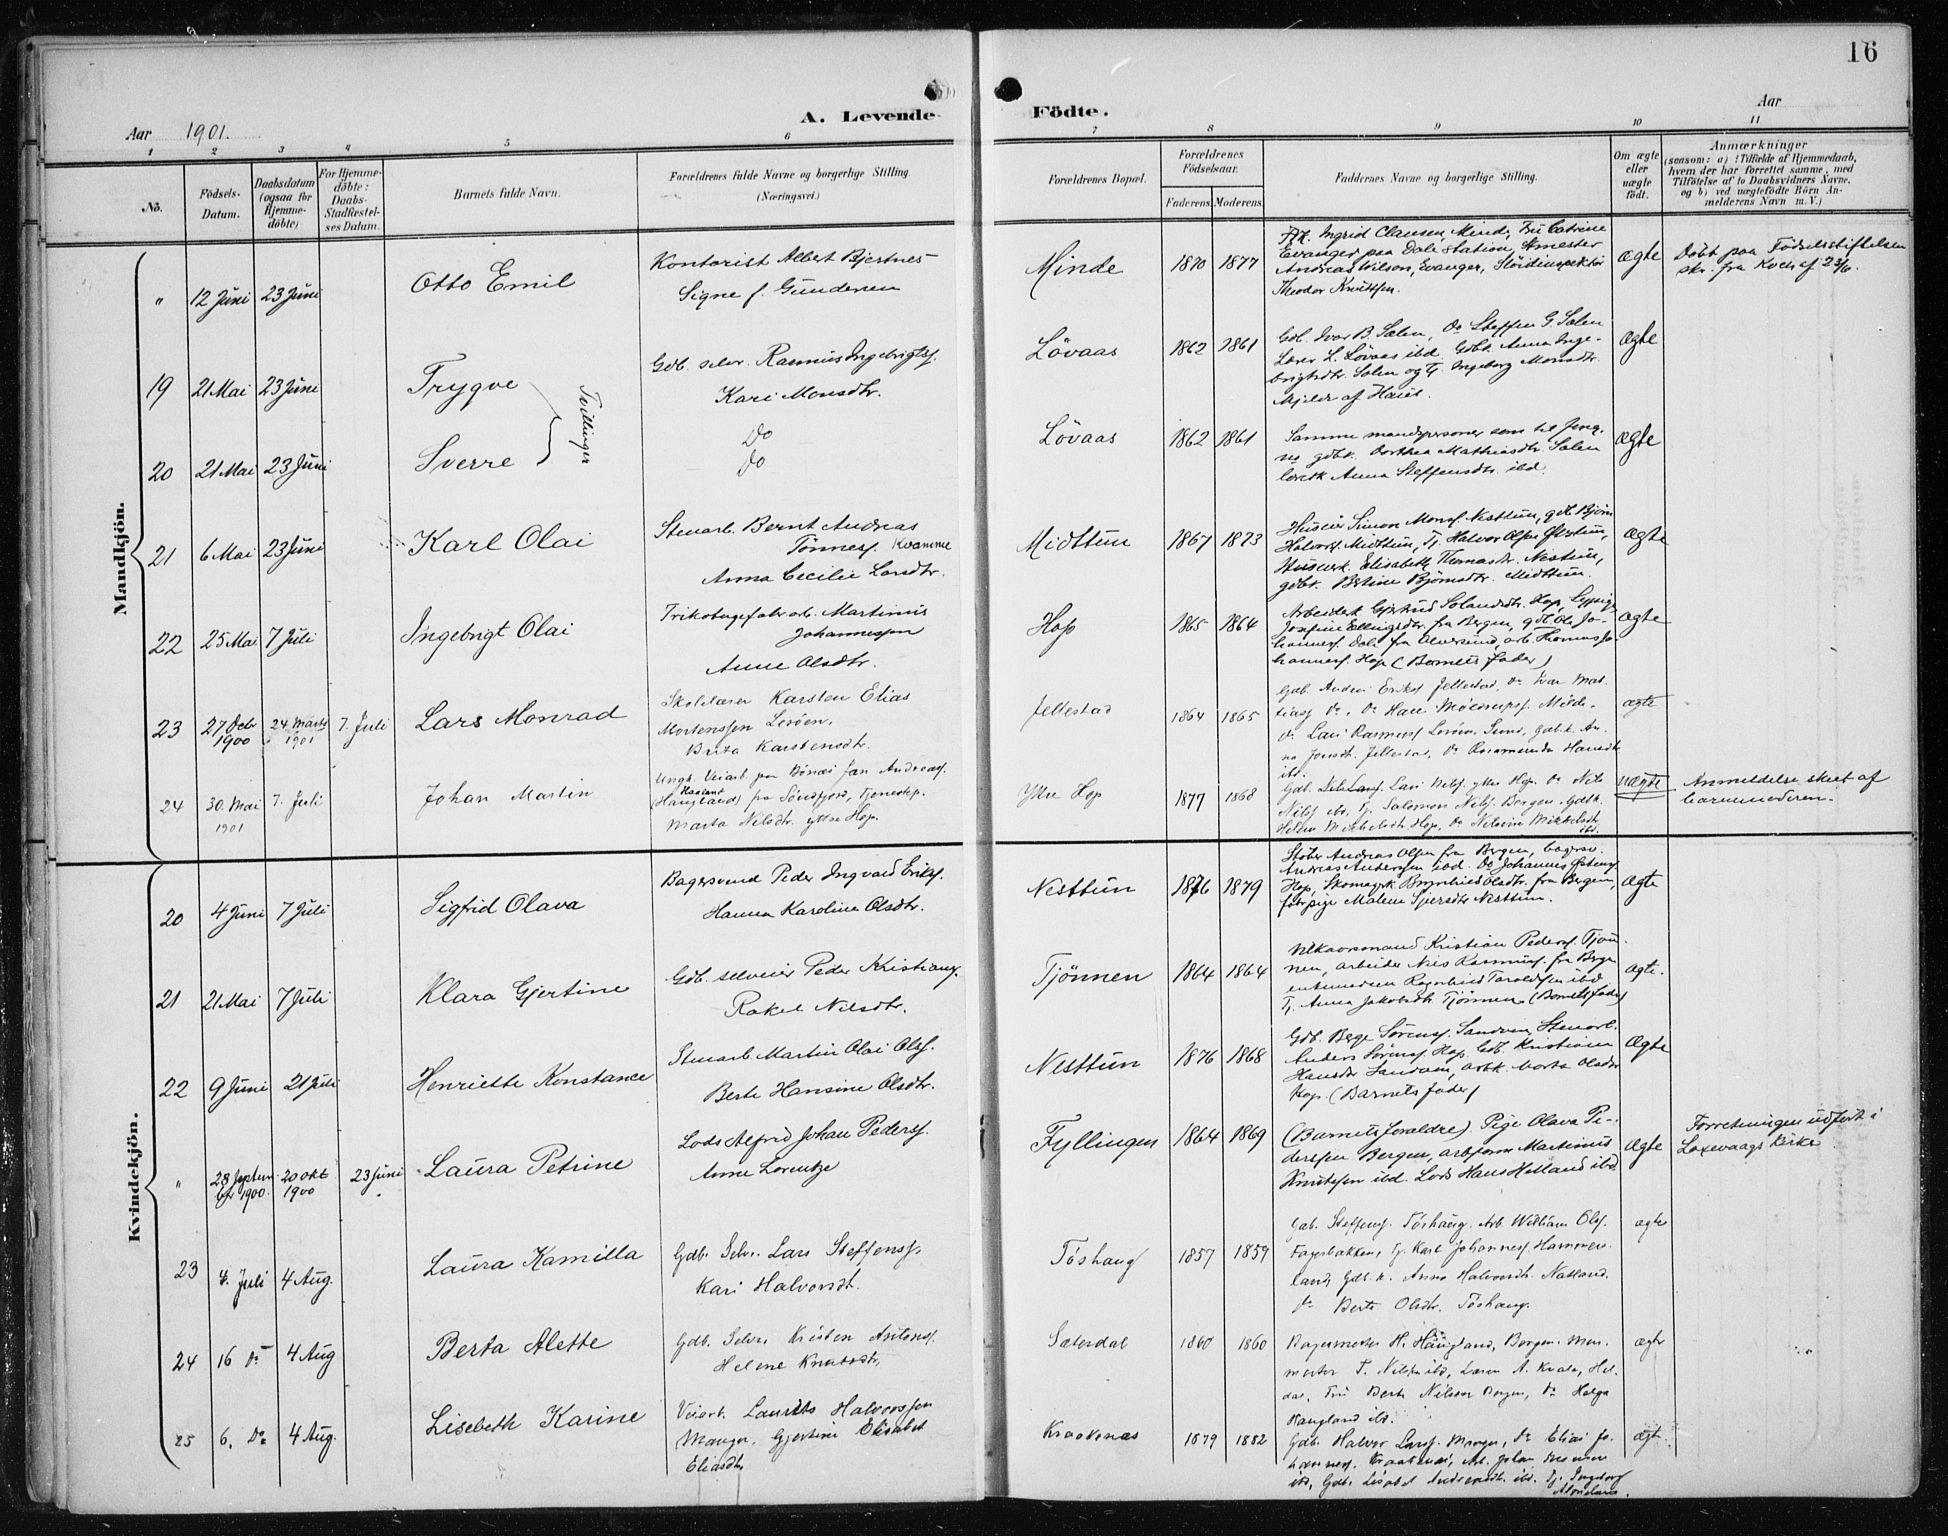 16
Aar 1901.
A. Levende
Födte.
Aar
1 2 3 4 5 6 7 8 9 10 11
No.
Födsels-Datum.
Daabsdatum (ogsaa for Hjemme-döbte)
For Hjemme-döbte: Daabs-Stadfæstel-ses Datum.
Barnets fulde Navn.
Forældrenes fulde Navne og borgerlige Stilling.
(Næringsvei.)
Forældrenes Bopæl.
Forældrenes Födselsaar.
Faderens.
Moderens.
Faddernes Navne og borgerlige Stilling.
Om ægte eller uægte födt.
Anmærkninger
(saasom: a) i Tilfælde af Hjemmedaab,
hvem der har forrettet samme, med
Tilföielse af to Daabsvidners Navne,
og b) ved uægtefödte Börn An-
melderens Navn m. V.)
Mandkjön.
" 12 Juni 23 Juni Otto Emil
Kontorist Albert Bjertnes
Signe f. Gundersen
Minde 1870 1877
Frk. Ingrid Clausen, Minde, Fru Catrine
Evanger paa Dale Station,
Andreas Wilson, Evanger, Slöidinspektör
Theodor Knutsen.
ægte
Döbt paa Födselsstiftelsen
skr. fra Koch af 23/6.
19 21 Mai 23 Juni Trygve
Tvillinger
Gdb. selv. Rasmus Ingebrigts.
Kari Monsdtr.
Lövaas 1862 1861
Gdb. Ivar B. Sælen, Do Steffen G. Sælen
Lærer L. Lövaas ibd. Gdbk. Anna Inge-
brigtsdtr. Sælen og Tj. Ingeborg Monsdtr.
Mjelde af Haus.
Ægte
20 21 Mai 23 Juni Sverre
Do
Do
Lövaas 1862 1861
Samme mandspersoner som til
gdbk. Dorthea Mathiasdtr. Sælen
Anna Steffensdtr. ibd.
ægte
21 6 Mai 23 Juni Karl Olai
Stenarb. Bernt Andreas
Tönnes. Kvamme
Anna Cecilie Larsdtr.
Midttun 1867 1873
Huseier Simon Mons. Nesttun, gdb. Björn
Halvors. Midttun, Tj. Halvor Olsen
Elisabeth Thomasdtr. Nesttun,
gdbk. Bertine Björnsdtr. Midttun.
ægte
22 25 Mai 7 Juli Ingebrigt Olai
Trikotagefabr.arb. Martinus
Johannessen
Anne Olsdtr.
Hop 1865 1864
Arbeiderk. Gjertrud Hop,
Josefine Ellingsdtr. fra Bergen, gdb. Ole Jo-
hannes. Dale fra Alversund, arb. Thomas Jo-
hannes. Hop (Barnets fader)
ægte
23 27 Octb 1900 24 Marts 1901 7. Juli Lars Monrad
Skolelærer Karsten Elias
Mortenssen Leröen,
Brita Karstensdtr.
Jellestad 1864 1865
Gdb. Anders Eriks. Jellestad, Do Ivar Mat-
Do, Do Hans
Do Lars Rasmus. Leröen, Sund, gdb.k. An-
na Jonsdtr. Jellestad, Do Rasmunda Hansdtr
ibd.
ægte
24 30. Mai 1901 7. Juli Johan Martin
Ungk. Veiarb. paa Bönæs Jan Andreas.
(Haugland) fra Söndfjord, Tjenestep.
Marta Nilsdtr. Ytre Hop.
Ytre Hop 1877 1868
Gdb. Lars Nils. Ytre Hop, Do Nils
Nils. ibd, Tj. Salomon Nils. Bergen, Gdbk.
Helene Mikkelsdtr. Hop, Do Nilsine Mikkelsdtr.
ibd.
uægte
Anmeldelse skeet af
barnemoderen.
Kvindekjön.
20 4 Juni 7 Juli Sigfrid Olava
Bagersvend Peder Ingvald Eriks.
Hanna Karoline Olsdtr.
Nesttun 1876 1879
Andreas Olsen fra Bergen, bagersv.
Andreas Andersen ibd. Do Johannes
Hop, Skomagerk. Brynhild Olsdtr. fra Bergen,
fabr.pige Malene Sjursdtr Nesttun.
Ægte
21 21 Mai 7 Juli Klara Gjertine
Gdb. selveier Peder Kristians.
Rakel Nilsdtr.
Tjönnen 1864 1864
Kristian Peders. Tjön-
nen, arbeider Nils Rasmus. fra Bergen
Ragnhild ibd
Tj. Anna Jakobsdtr. Tjönnen (Barnets fader)
ægte.
22 9 Juni 21 Juli Henriette Konstance
Stenarb. Martin Olai Ols.
Berte Hansine Olsdtr.
Nesttun 1876 1868
Gdb. Berge Sörens. Sandven, Stenarb.
Anders Sörens. Hop, Gdb. Kristian
Hansdtr Sandven, arbk. Marta Olsdtr
Hop. (Barnets fader)
Ægte
" 28 Septem-ber 1900. 20 okt 1900 23 Juni Laura Petrine
Lods Alfred Johan Peders.
Anne Lorentze
Fyllingen 1864 1869
(Barnets forældre). Pige Olava Pe-
dersen Bergen, arbform. Martinus
Knutssen ibd. Lods Hans Helland ibd.
Ægte
Forretningen udfört i
Laxevaags Kirke
23 4. Juli 4 Aug. Laura Kamilla
Gdb. Selv. Lars Steffens.
Kari Halvorsdtr.
Töshaug 1857 1859
Gdb. Steffens. Töshaug, Arb. William Ols.
Fagerbakken, Tj. Karl Johannes. Hammers-
land, Gdb.k. Anna Halvorsdtr. Natland,
Do Berte Olsdtr. Töshaug.
ægte
24 16 Do 4 Aug Berta Alette
Gdb. Selv. Kristen Antons.
Helene Knutsdtr.
Sætersdal 1860 1860
Bagermester H. Haugland, Bergen, Mur-
mester T. Nilsen ibd, Læren A. Kvale, Hel-
dal, Fru Berta Nilsen Bergen, Do Helga
Haugland ibd.
ægte
25 6. Do 4 Aug. Lisebeth Karine
Veiarb. Laurits Halvorssen
Manger, Gjertine Elisabet
Eliasdtr.
Kraakenæs 1879 1882
Gdb. Halvor Lars. Manger, Do Elias Jo-
hannes. Kraakenæs, Arb. Johan
ibd, Gdb. Lisabet ibd. Tj. Ingeborg
ægte